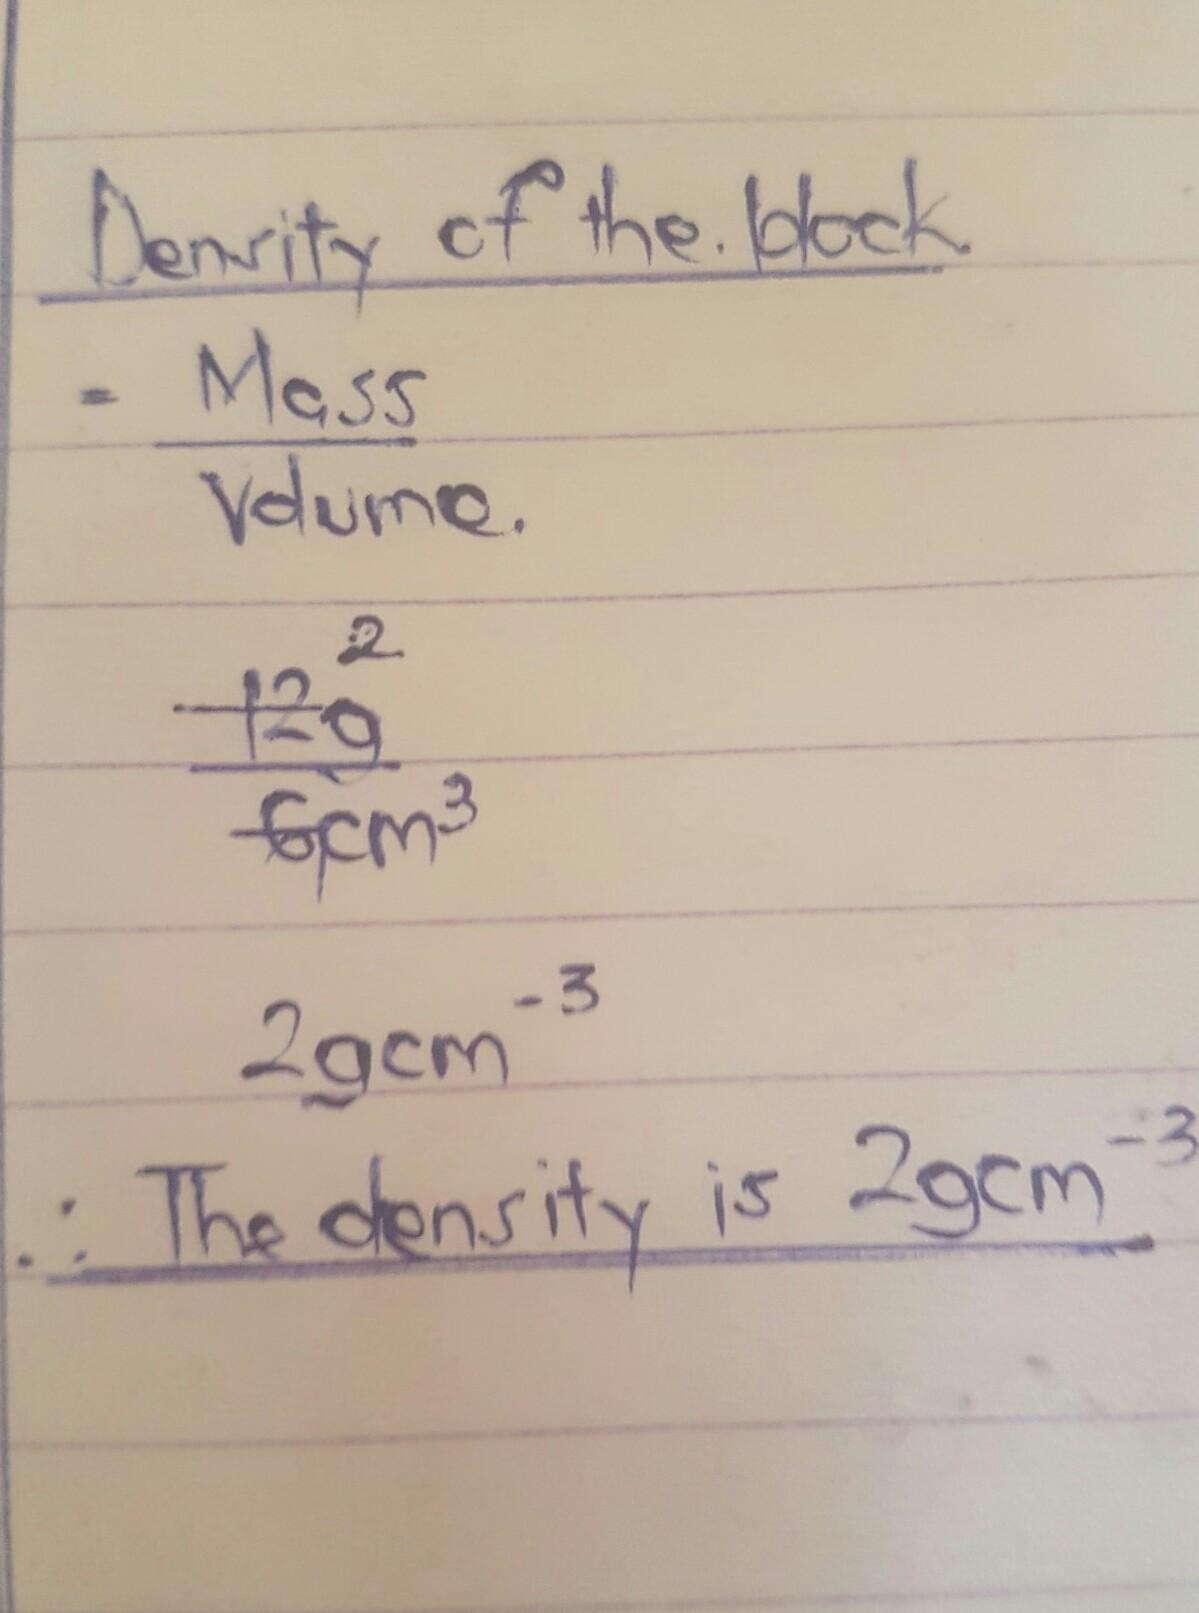 Density of the block.
= Mass
Volume.
2
12g
6cm³
2gcm⁻³
∴ The density is 2gcm⁻³